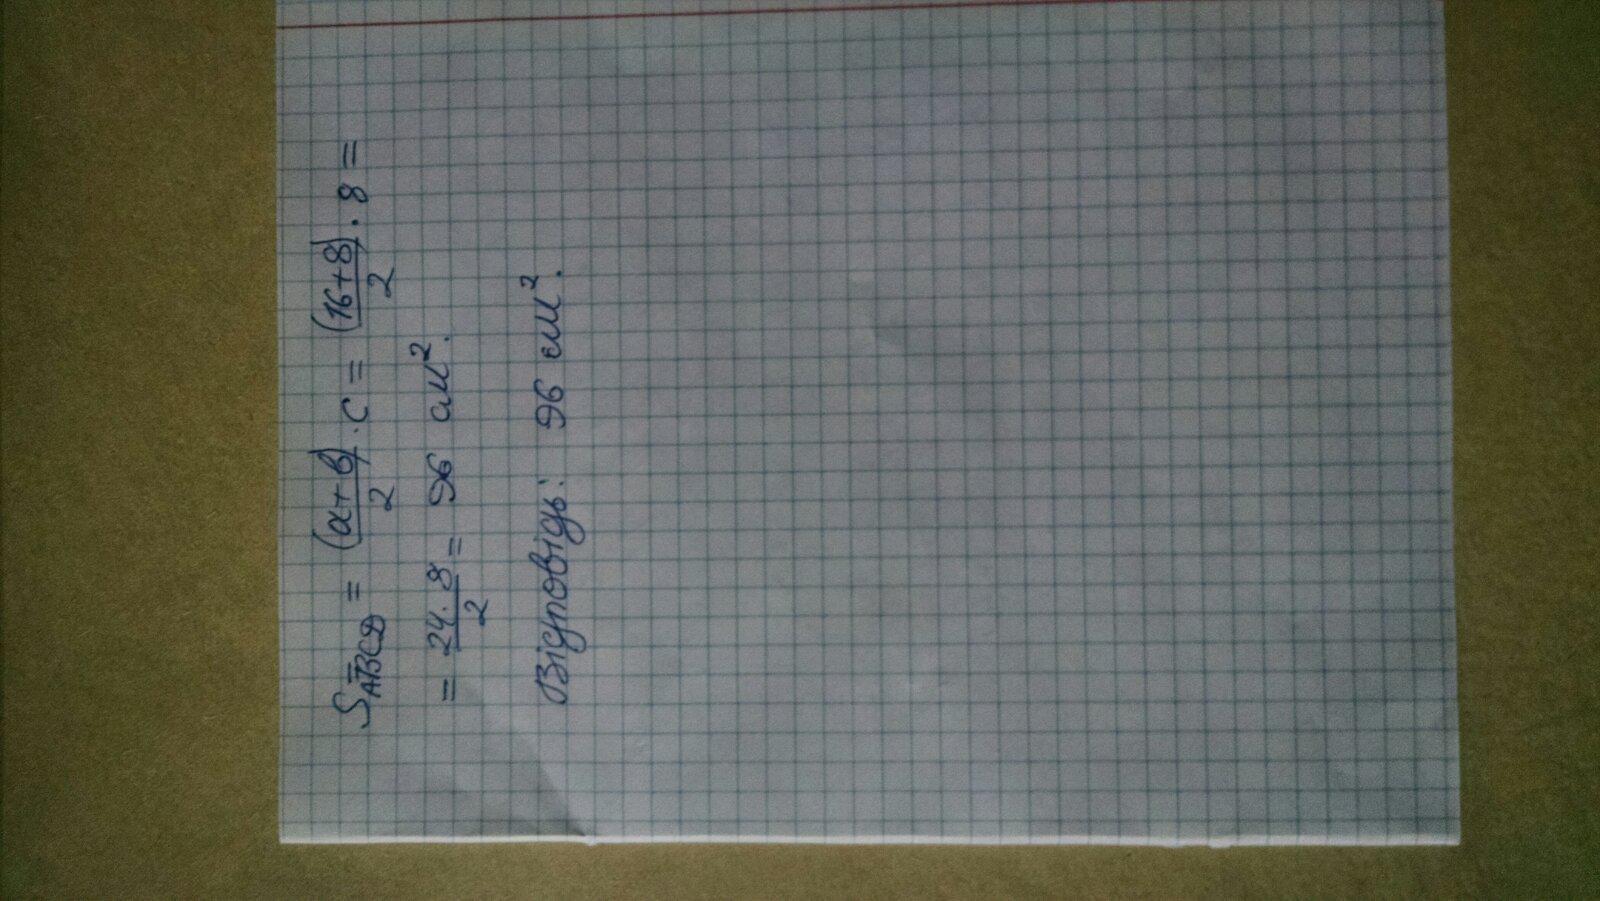 S ABCD = (a+b)/2 · c = (16+8)/2 · 8 =
= 24·8/2 = 96 см².
Відповідь: 96 см².